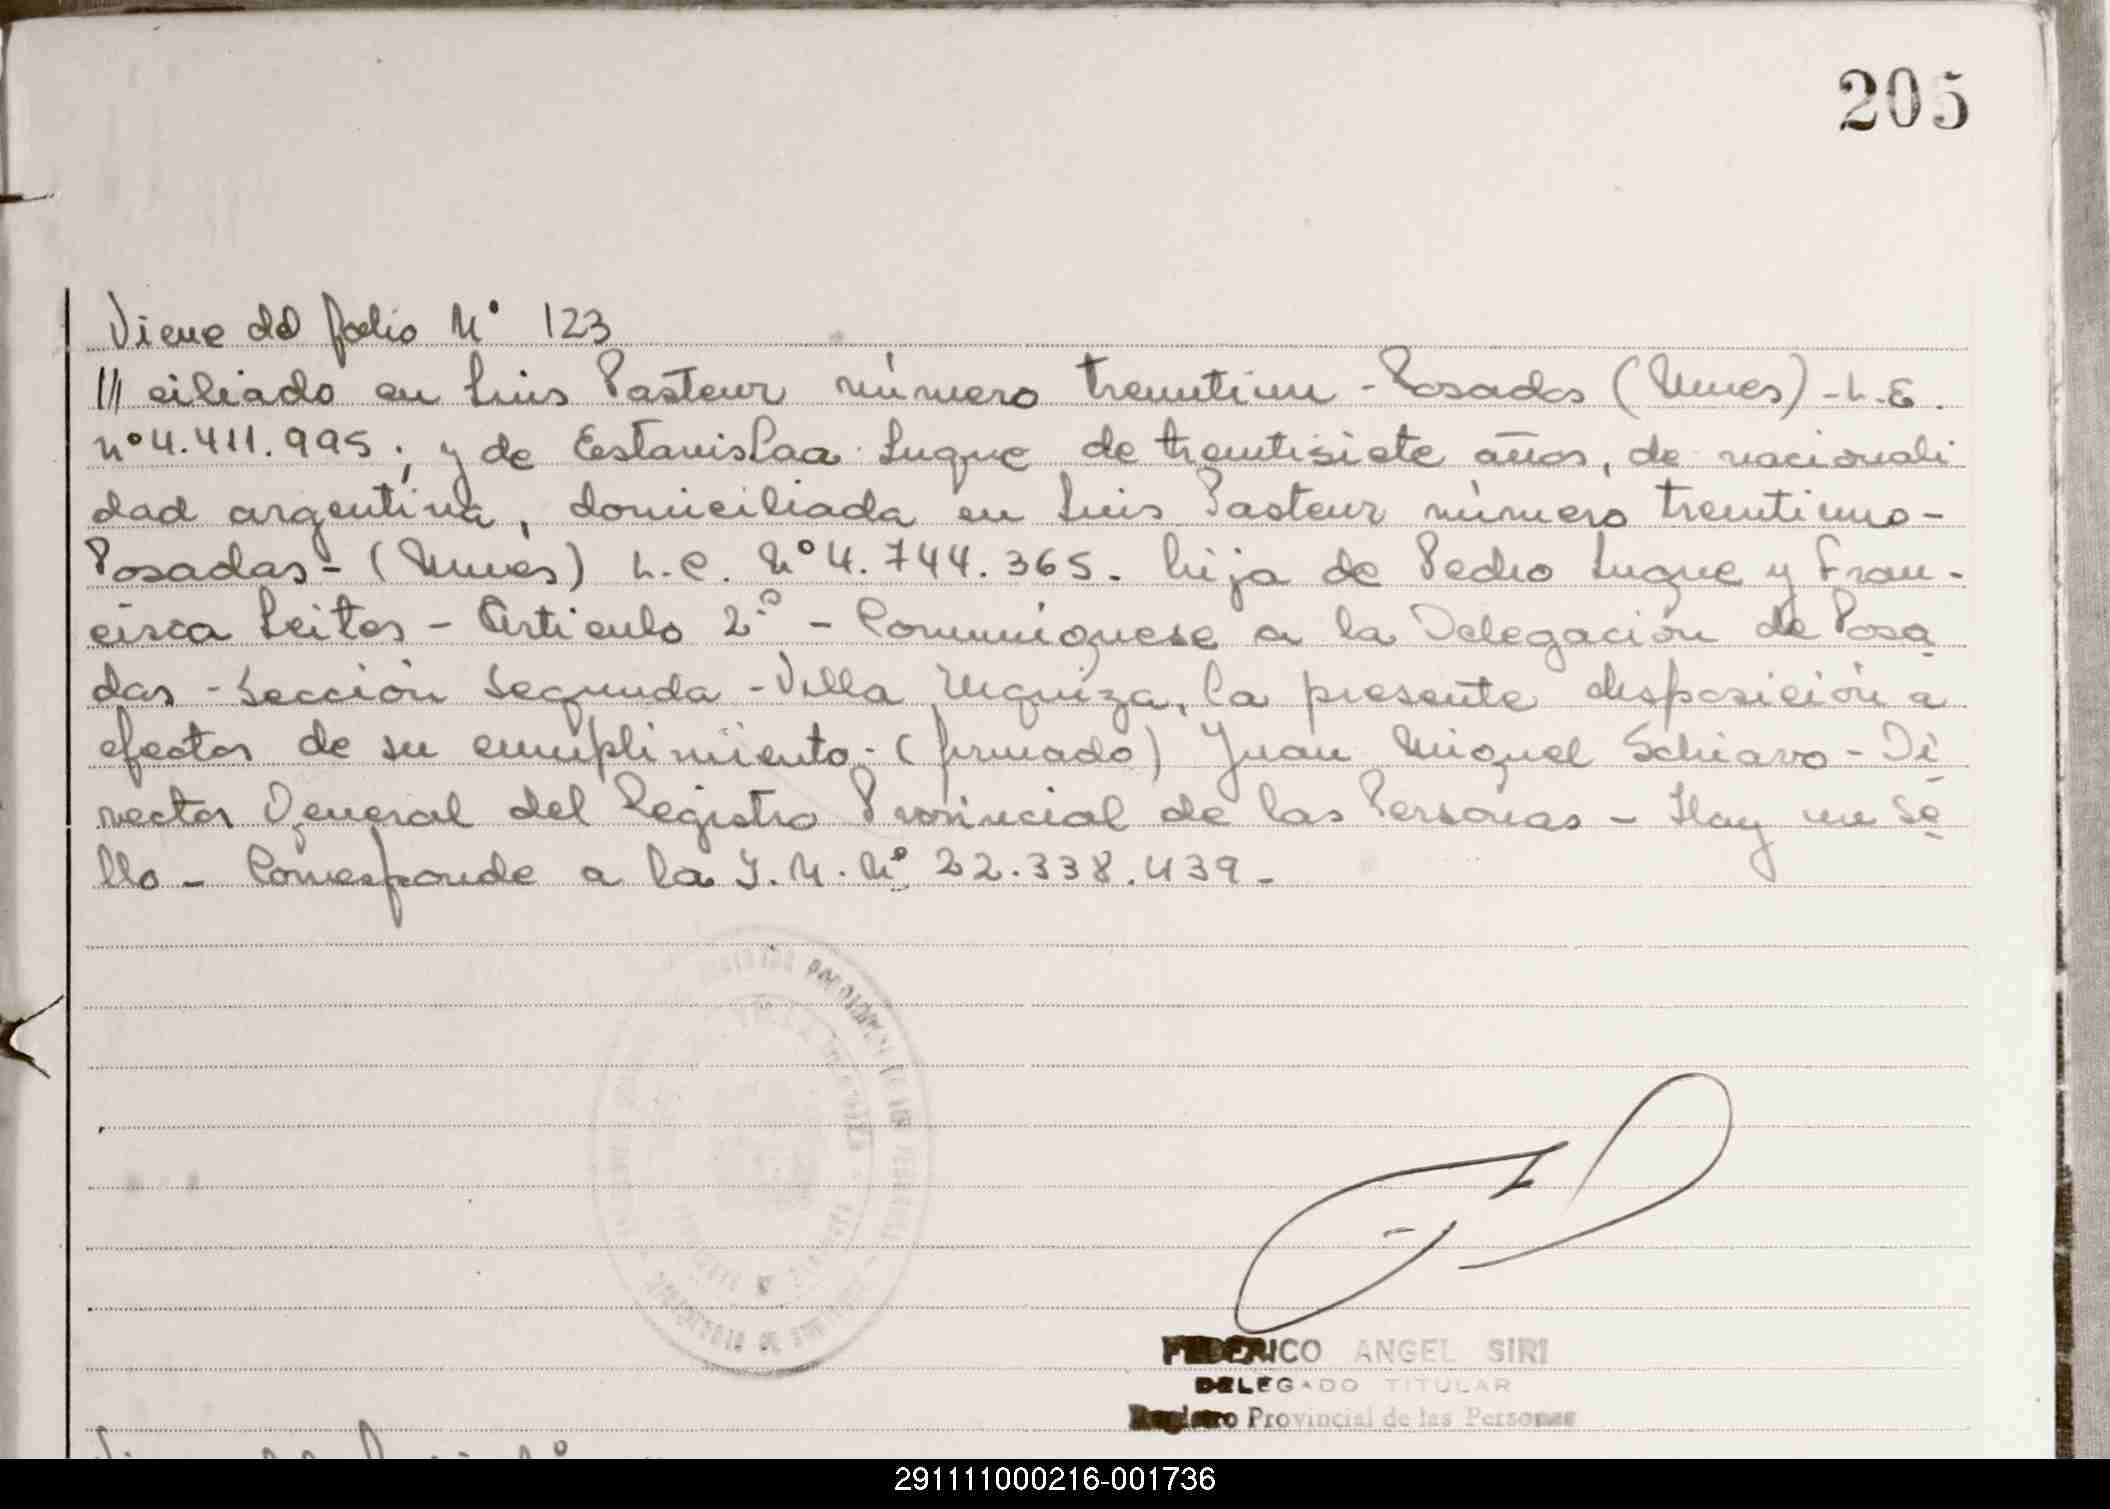 205
Viene del folio Nº 123
/// ciliado en Luis Pasteur número trentiun - Posadas (Mnes) - L.E.
nº 4.411.995; y de Estanislaa Luque de trentisiete años, de nacionali
dad argentina, domiciliada en Luis Pasteur número trentiuno -
Posadas - (Mnes) L.C. Nº 4.744.365. hija de Pedro Luque y Fran-
cisca Leites - Articulo 2º - Comuniquese a la Delegación de Posa
das - Sección Segunda - Villa Urquiza, la presente disposición a
efectos de su cumplimiento - (firmado) Juan Miguel Schiavo - Di
rector General del Registro Provincial de las Personas - Hay un se
llo - Corresponde a la I.N. Nº 22.338.439 -
FEDERICO ANGEL SIRI
DELEGADO TITULAR
Registro Provincial de las Personas
291111000216-001736